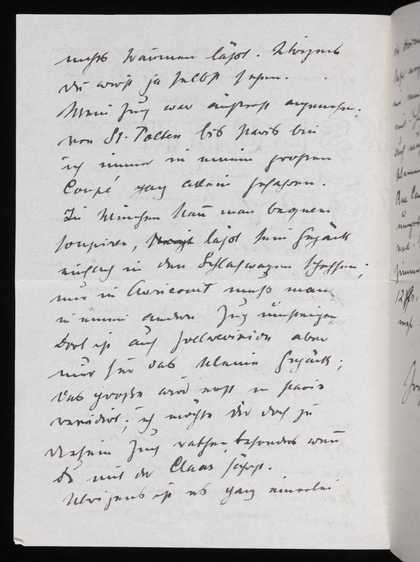 nichts träumen läßt. Übrigens
Du wirst ja selbst sehen.
Mein Zug war äußerst angenehm;
von St. Pölten bis Paris bin
ich immer in meinem großen
Coupé ganz allein gefahren.
In München kann man bequem
soupiren, läßt sein Gepäck
einfach in den Schlafwagen schaffen;
nur in Avricourt muß man
in einen andern Zug umsteigen
Dort ist auch Zollrevision aber
nur für das kleine Gepäck;
das große wird erst in Paris
revidirt; ich möchte Dir doch zu
diesem Zug rathen, besonders wenn
Du mit der Claar fährst.
Übrigens ist es ganz einerlei